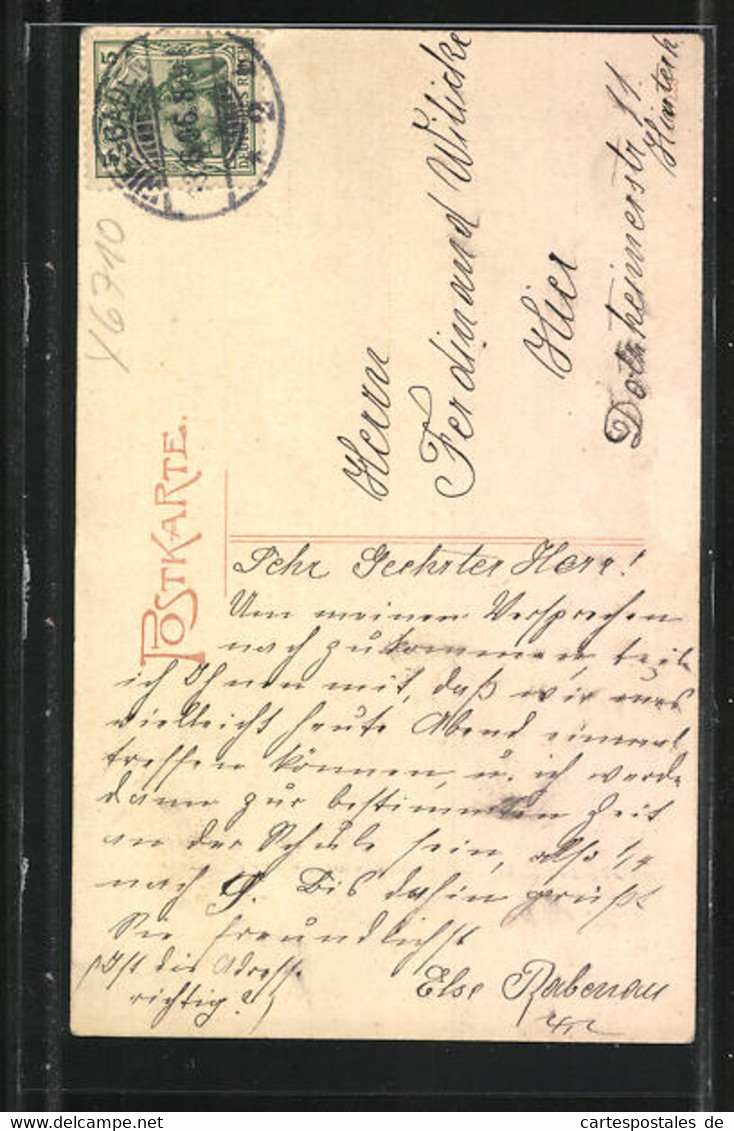 5 5
DEUTSCHES REICH
WIESBADEN
* 2 *
X6710
POSTKARTE.
Herrn
Ferdinand Wilicke
Hier
Dotzheimerstr 11
Hinterh
Sehr Geehrter Herr!
Um meinem Versprechen
nach zukommen, teile
ich Ihnen mit, daß wir uns
vielleicht heute Abend einmal
treffen können, u. ich werde
dann zur bestimmten Zeit
an der Schule sein, also 1/4
nach 9. Bis dahin grüßt
Sie freundlichst
Else Rabenau
(Ist die Adresse
richtig?)
www.delcampe.net
cartespostales de